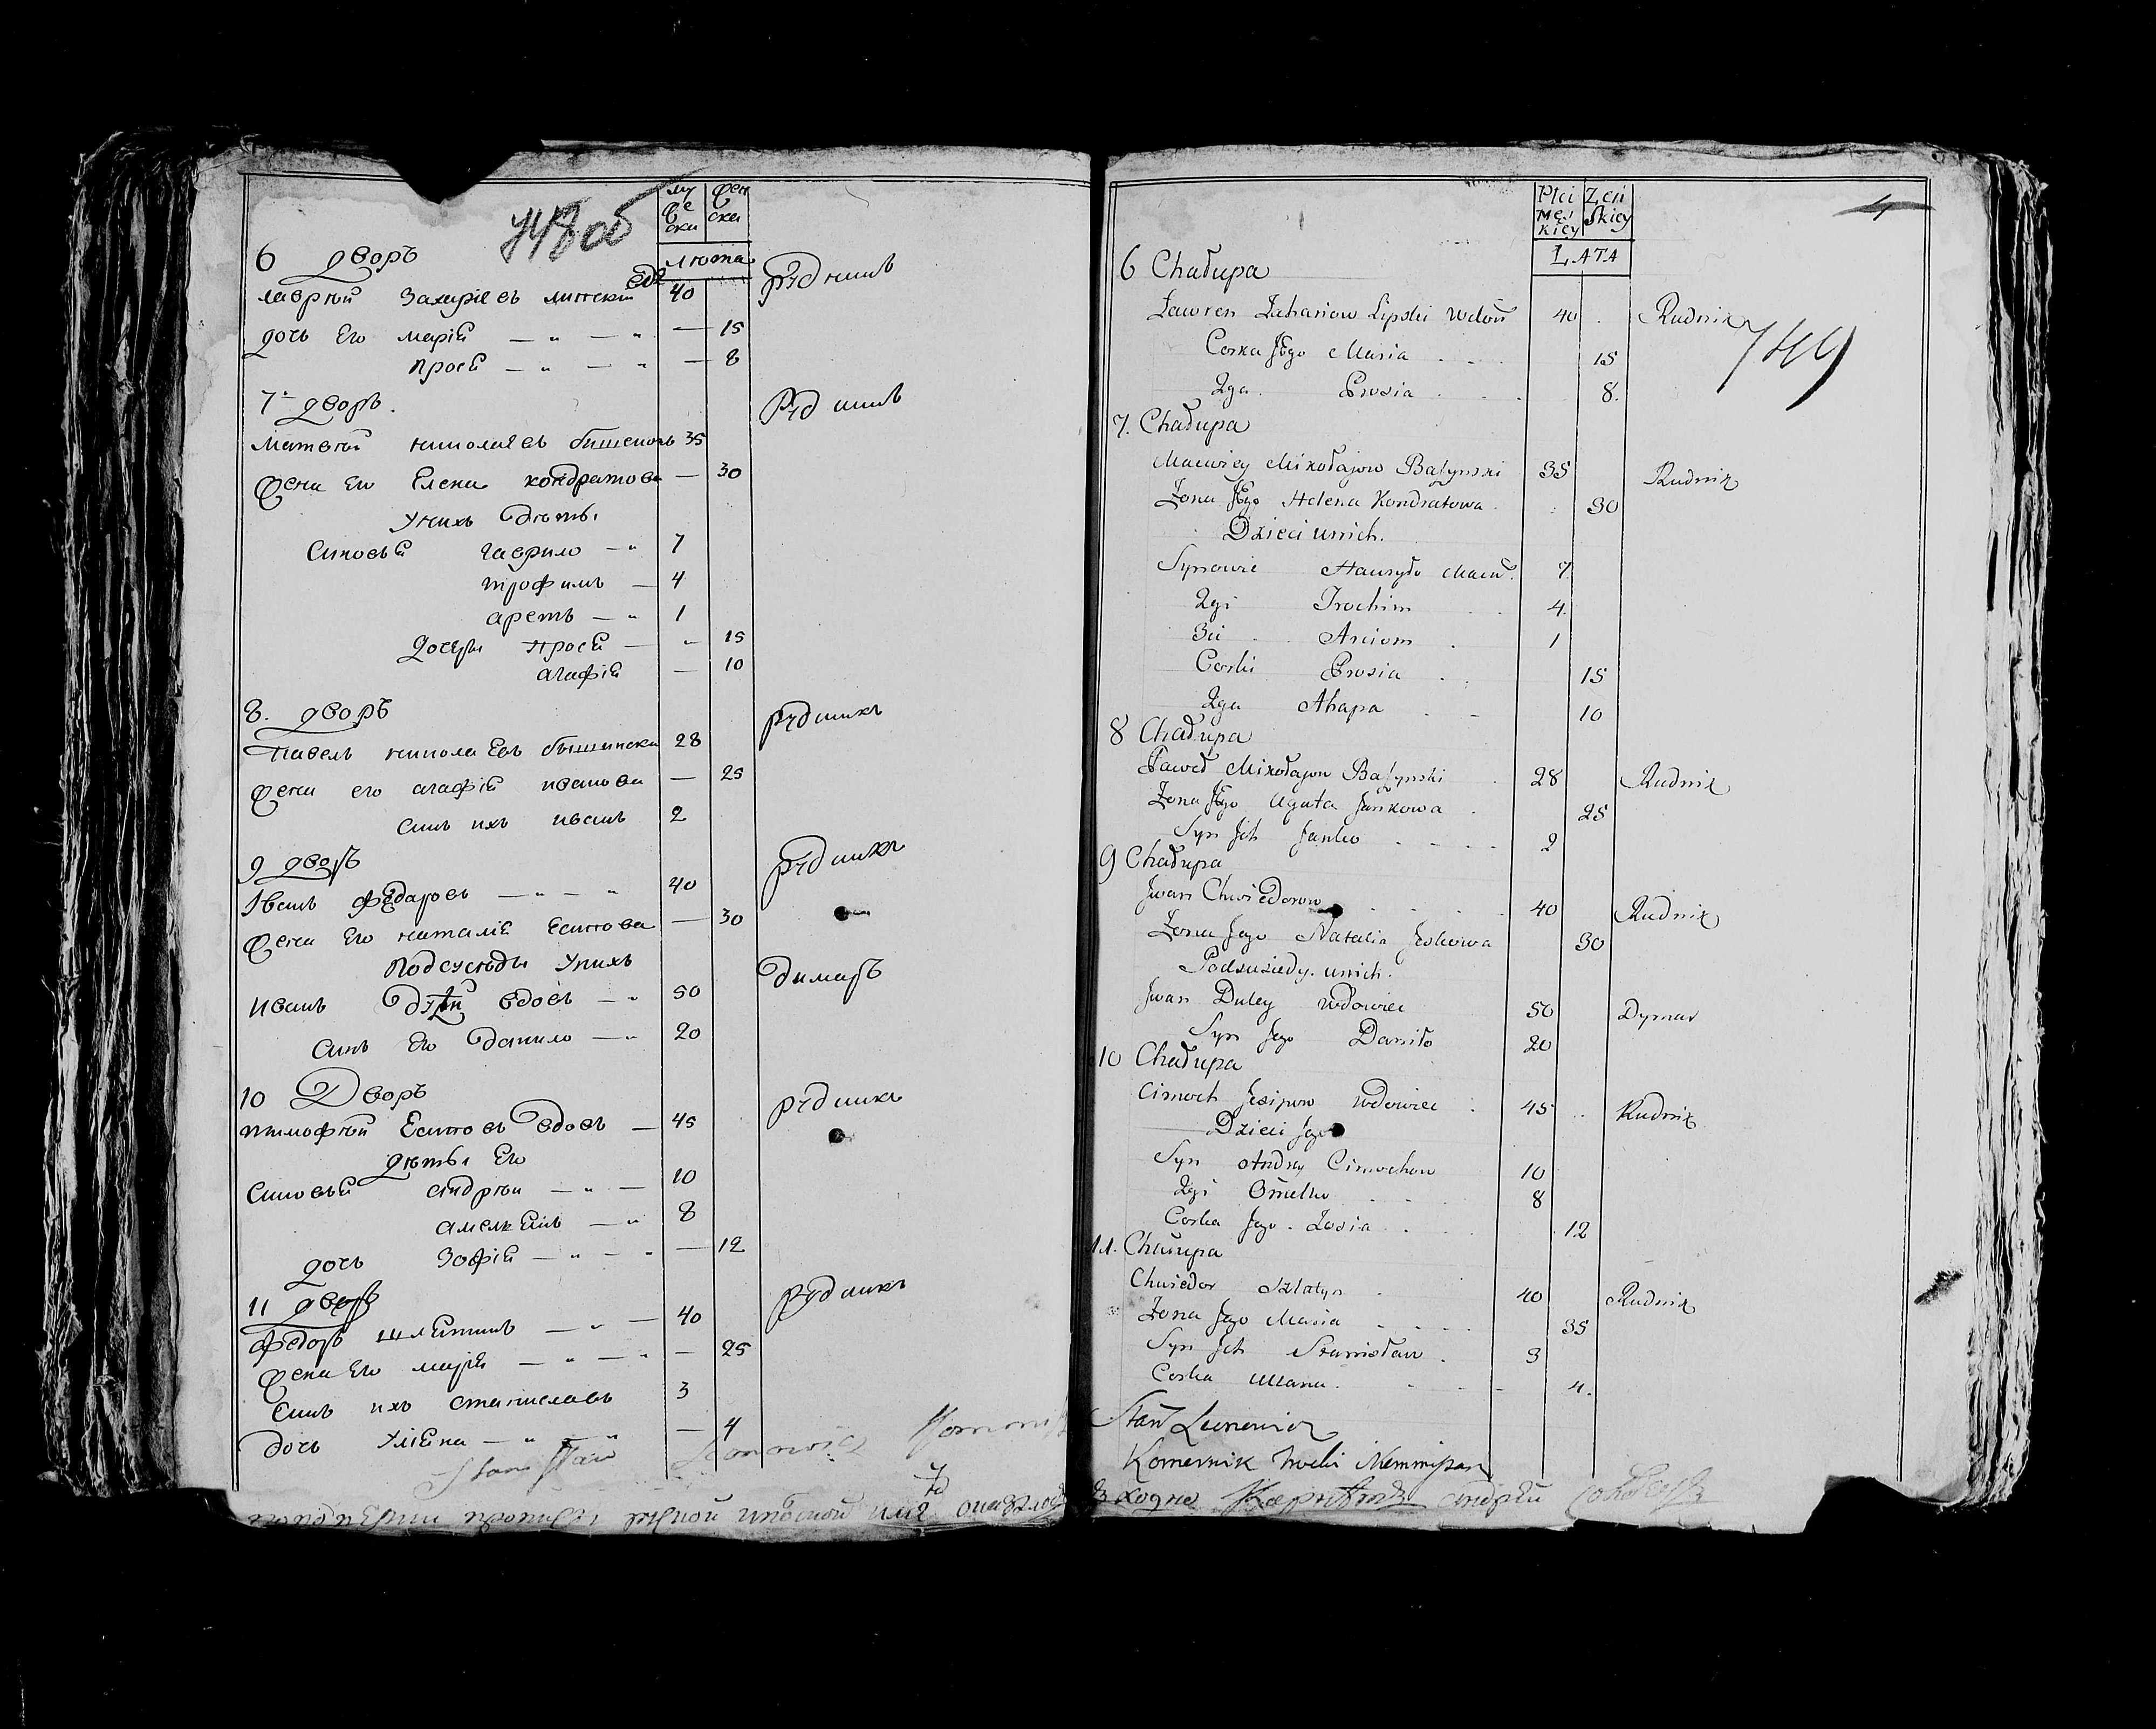 748 об
му
же
ски
жен
ски
люта
6 дворъ
лаврѣй Захаріевъ липский вдо 40 рудникъ
дочь Его марія — „ — „ — 15
прося — „ — „ — 8
7 дворъ.
Рудникъ
Матвѣй николаевъ 35
жена Его Елена кондратова — 30
Унихъ дѣти
Синовья гаврило — „ 7
трофимъ — 4
аретъ — „ 1
дочери прося — „ 15
агафія — 10
8. дворъ рудникъ
павелъ николаевъ бышински 28
жена его агафія иванова — 25
синъ ихъ иванъ 2
9 дворъ рудникъ
Іванъ федаровъ — „ — „ 40
жена Его наталія Есипова — 30
Подсусѣды Унихъ
димаръ
иванъ вдовъ — „ 50
синъ Его данило — „ 20
10 Дворъ рудникъ
тимофѣй Есиповъ вдовъ — 45
дѣти Его
Синовья андрѣй — „ — 10
амелкянъ — „ 8
дочь Зофія — „ — „ — 12
11 дворъ рудникъ
федоръ — „ — 40
жена Его марія — „ — „ — 25
Синъ ихъ станиславъ 3
дочь Уляна — „ — „ — 4
Płci
męs
kiey
Zeń
skiey
LATA
4
749
6 Chałupa
Ławren Zahariow Lipski Wdow 40 Rudnik
Corka Jego Maria 15
2ga Prosia 8.
7. Chałupa
Maciwiey Mikołajow Bałynski 35 Rudnik
Zona Jego Helena Kondratowa 30
Dzieci unich.
Synowie Hawryło Maciw. 7
2gi Trochim 4.
3ci Arciom 1
Corki Prosia 15
2ga Ahapa 10
8 Chałupa
Paweł Mikołajow Bałynski 28 Rudnik
Zona Jego Agata Jankowa 25
Syn Jch Janko 2
9 Chałupa
Jwan Chwiedorow 40 Rudnik
Zona Jego Natalia Jeskowa 30
Podsusiedy unich.
Jwan Duley Wdowiec 50 Dymar
Syn Jego Daniło 20
10 Chałupa
Cimoch Jesipow Wdowiec 45 Rudnik
Dzieci Jego
Syn Andrey Cimochow 10
2gi Omelko 8
Corka Jego Zosia 12
11. Chałupa
Chwiedor 40 Rudnik
Zona Jego Maria 35
Syn Jch Stanisław 3
Corka Ullana 4.